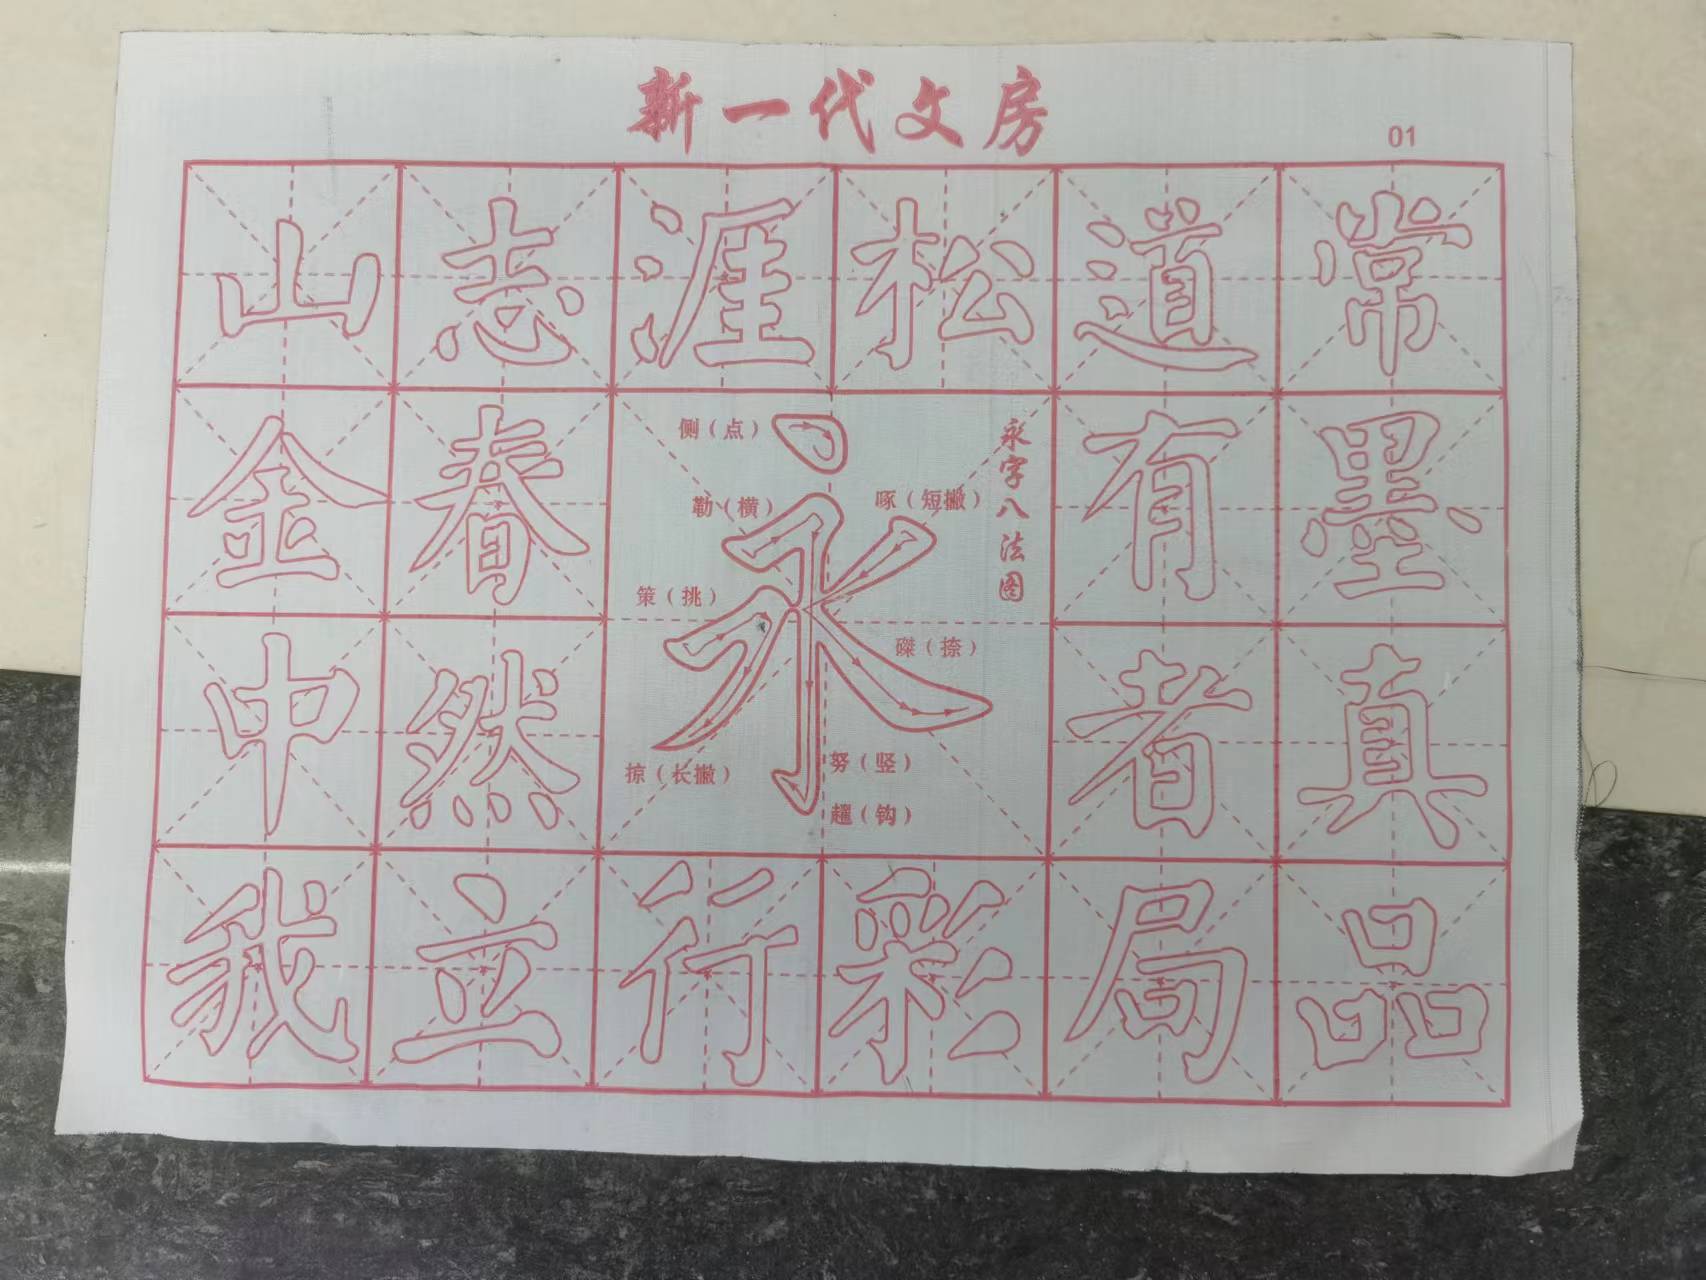 新一代文房
01
山志涯松道常
金春有墨
中然者真
我立行彩局品
永
永字八法图
侧（点）
勒（横）
啄（短撇）
策（挑）
磔（捺）
掠（长撇）
努（竖）
趯（钩）